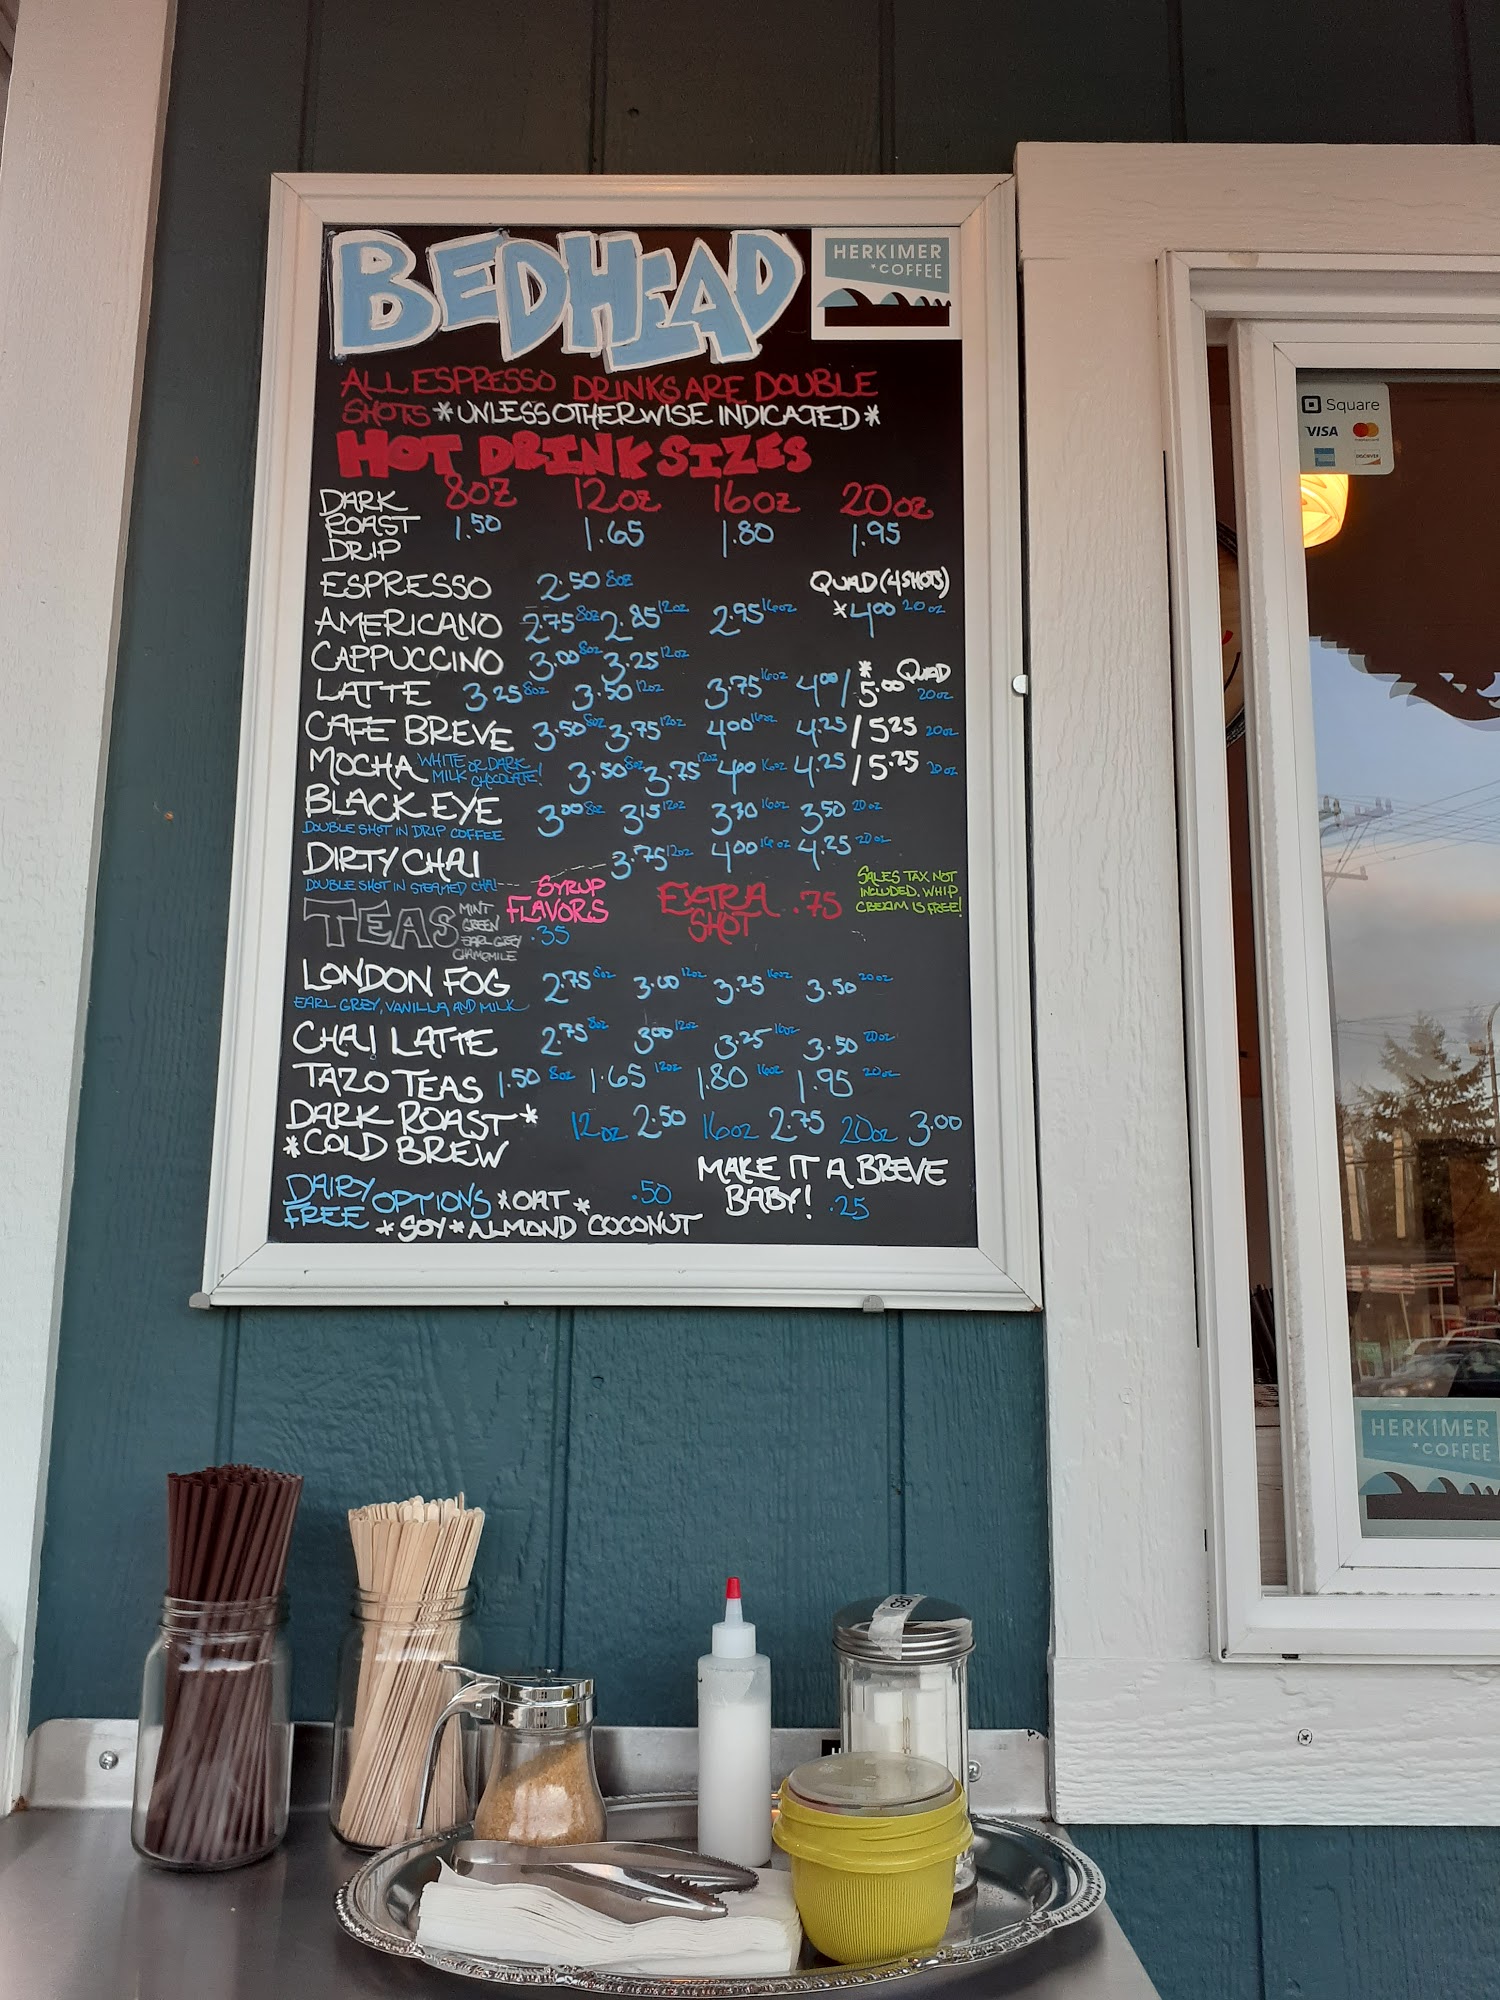 BEDHEAD
HERKIMER
*COFFEE
ALL ESPRESSO DRINKS ARE DOUBLE
SHOTS *UNLESS OTHERWISE INDICATED*
HOT DRINK SIZES
8OZ 12OZ 16OZ 20OZ
DARK ROAST DRIP 1.50 1.65 1.80 1.95
ESPRESSO 2.50 8OZ QUAD (4 SHOTS)
AMERICANO 2.75 8OZ 2.85 12OZ 2.95 16OZ *4.00 20OZ
CAPPUCCINO 3.00 8OZ 3.25 12OZ
* QUAD
LATTE 3.25 8OZ 3.50 12OZ 3.75 16OZ 4.00 / 5.00 20OZ
CAFE BREVE 3.50 8OZ 3.75 12OZ 4.00 16OZ 4.25 / 5.25 20OZ
MOCHA WHITE OR DARK MILK CHOCOLATE! 3.50 8OZ 3.75 12OZ 4.00 16OZ 4.25 / 5.25 20OZ
BLACK EYE 3.00 8OZ 3.15 12OZ 3.30 16OZ 3.50 20OZ
DOUBLE SHOT IN DRIP COFFEE
DIRTY CHAI 3.75 12OZ 4.00 16OZ 4.25 20OZ
DOUBLE SHOT IN STEAMED CHAI
TEAS
MINT
GREEN
EARL GREY
CHAMOMILE
SYRUP
FLAVORS
.35
EXTRA
SHOT ..75
SALES TAX NOT
INCLUDED. WHIP
CREAM IS FREE!
LONDON FOG 2.75 8OZ 3.00 12OZ 3.25 16OZ 3.50 20OZ
EARL GREY, VANILLA AND MILK
CHAI LATTE 2.75 8OZ 3.00 12OZ 3.25 16OZ 3.50 20OZ
TAZO TEAS 1.50 8OZ 1.65 12OZ 1.80 16OZ 1.95 20OZ
DARK ROAST* 12OZ 2.50 16OZ 2.75 20OZ 3.00
*COLD BREW
DAIRY FREE OPTIONS *OAT* .50
*SOY*ALMOND COCONUT
MAKE IT A BREVE
BABY! .25
Square
VISA
DISCOVER
HERKIMER
*COFFEE